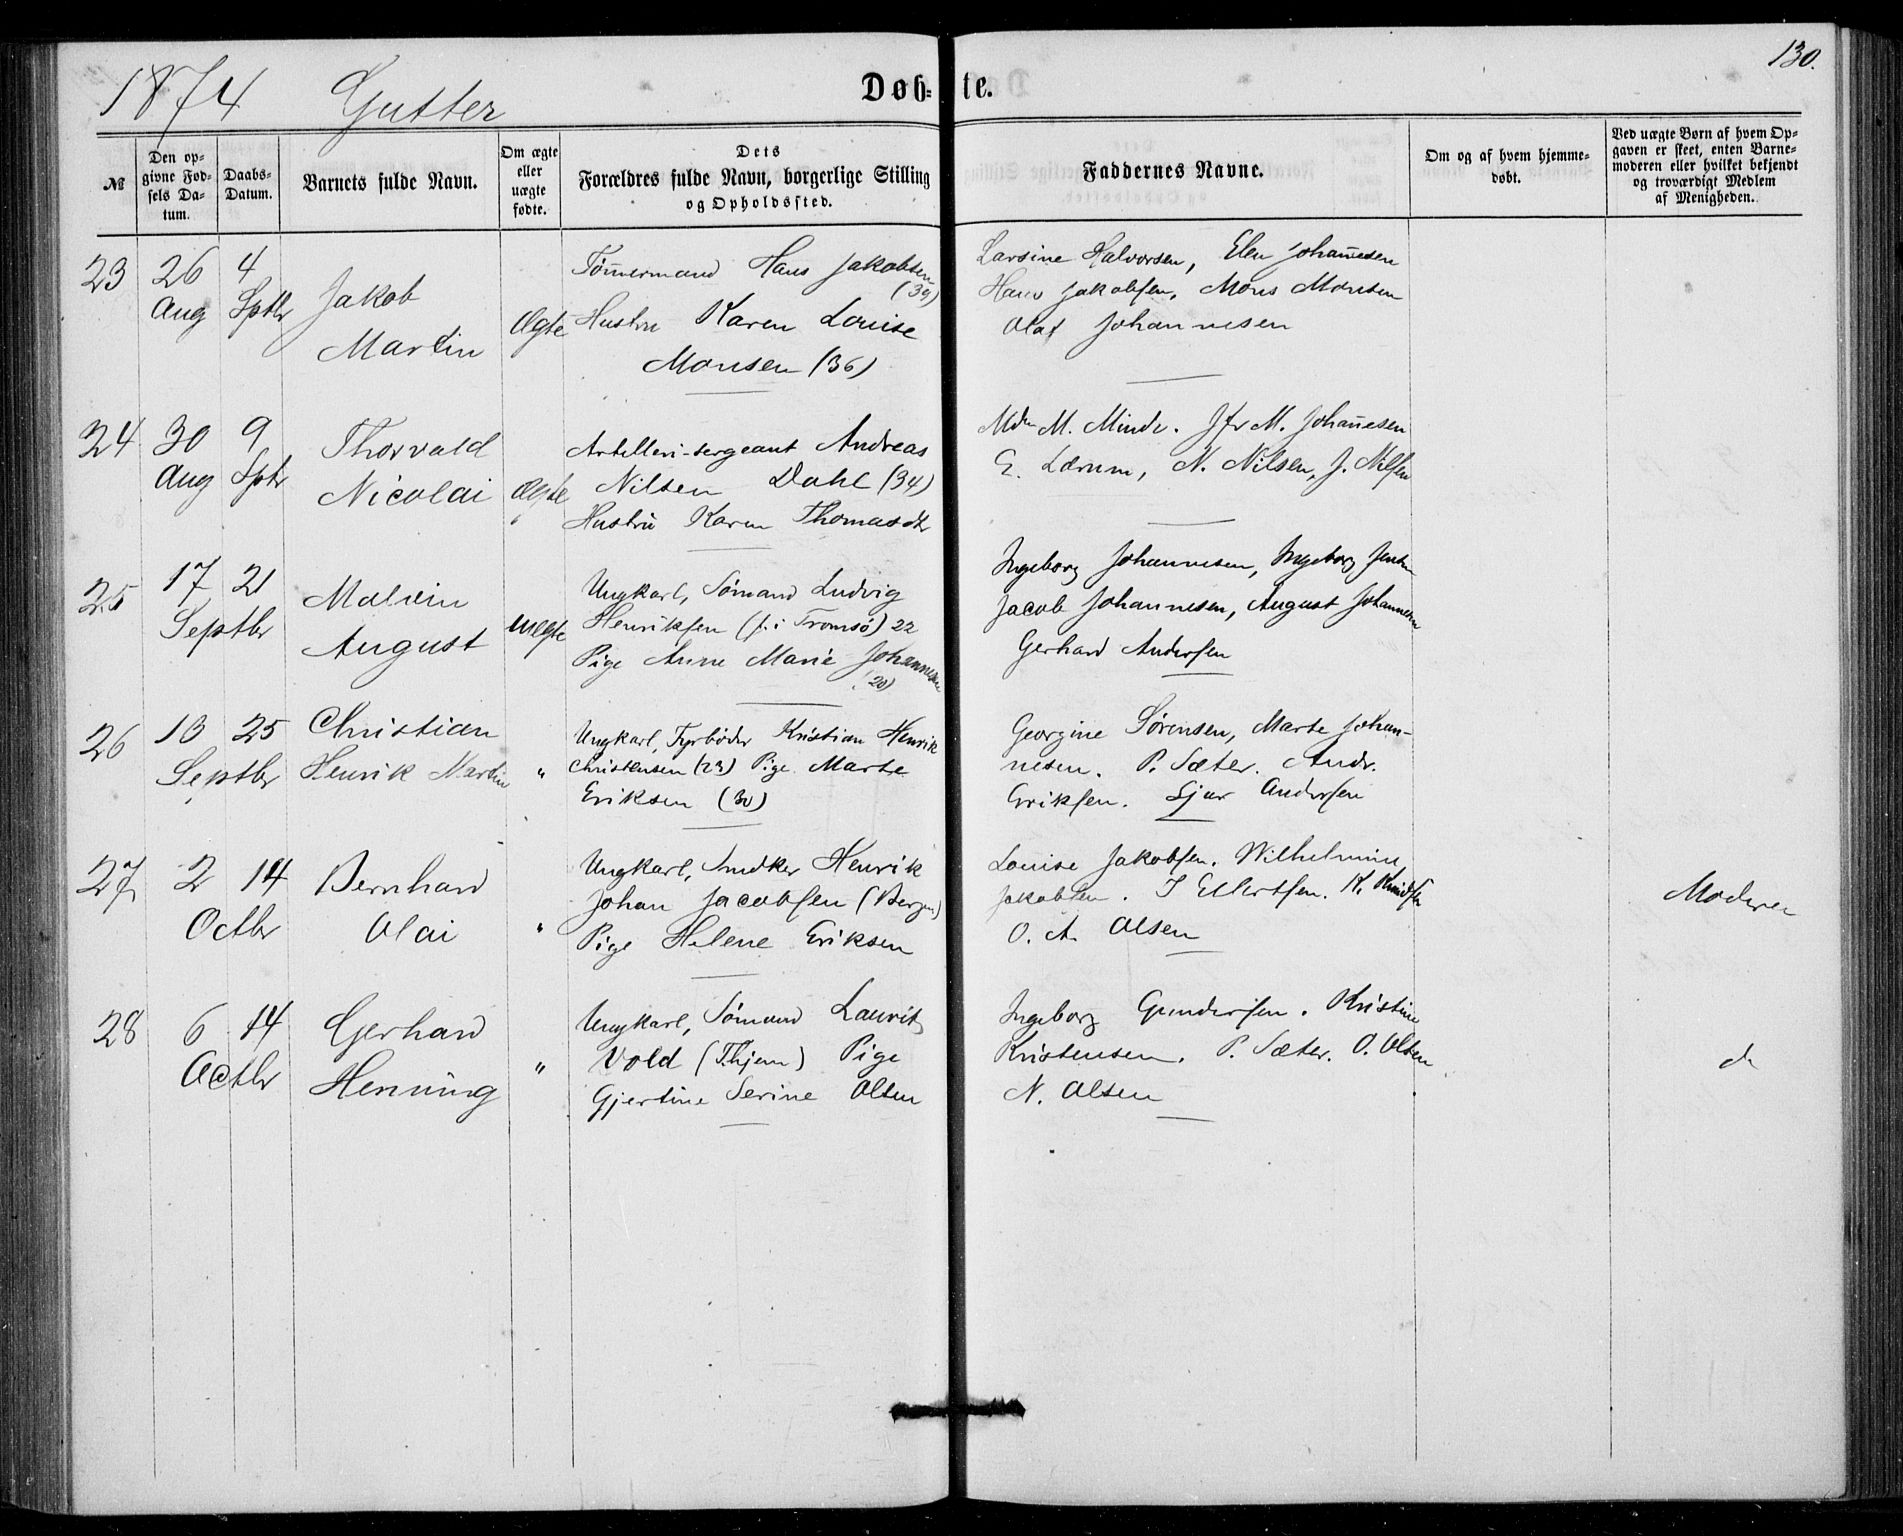 130.
1874 Gutter
Døb- te.
№
Den op-
givne Fød-
sels Da-
tum.
Daabs-
Datum.
Barnets fulde Navn.
Om ægte
eller
uægte
fødte.
Dets
Forældres fulde Navn, borgerlige Stilling
og Opholdssted.
Faddernes Navne.
Om og af hvem hjemme-
døbt.
Ved uægte Børn af hvem Op-
gaven er skeet, enten Barne-
moderen eller hvilket bekjendt
og troværdigt Medlem
af Menigheden.
23
26
Aug
4
Sptbr
Jakob
Martin
Ægte
Tømmermand Hans Jakobsen
(39)
Hustru Karen Louise
Monsen (36)
Larsine Halvorsen, Elen Johannesen
Hans Jakobsen, Mons Monsen
Olaf Johannesen
24
30
Aug
9
Sptr
Thorvald
Nicolai
Ægte
Artilleri-sergeant Andreas
Nilsen Dahl (34)
Hustru Karen Thomasdtr
Mdm M. Minde. Jfr M. Johannesen
E. Lærum, N. Nilsen, J. Nilsen
25
17 21
Septbr
Malvin
August
uægte
Ungkarl, Sømand Ludvig
Henriksen (f. i Tromsø) 22
Pige Anne Marie Johannesen
(20)
Ingeborg Johannesen, Ingeborg Jensen
Jacob Johannesen, August Johannesen
Gerhard Andersen
26
13 25
Septbr
Christian
Henrik Martin
"
Ungkarl, Fyrbøder Kristian Henrik
Christensen (23) Pige Marte
Eriksen (30)
Georgine Sørensen, Marte Johan-
nesen. P. Sæter. Andr.
Eriksen. Sjur Andersen
27
2 14
Octbr
Bernhard
Olai
"
Ungkarl, Snedker Henrik
Johan Jacobsen (Bergen)
Pige Helene Eriksen
Louise Jakobsen. Wilhelmine
Jakobsen. I Ellertsen. K. Knudsen
O. A. Olsen
Moderen
28
6 14
Octbr
Gerhard
Henning
"
Ungkarl, Sømand Laurits
Vold (Thjem) Pige
Gjertine Serine Olsen
Ingeborg Gundersen. Kristine
Kristensen. P. Sæter. O. Olsen
N. Olsen
do